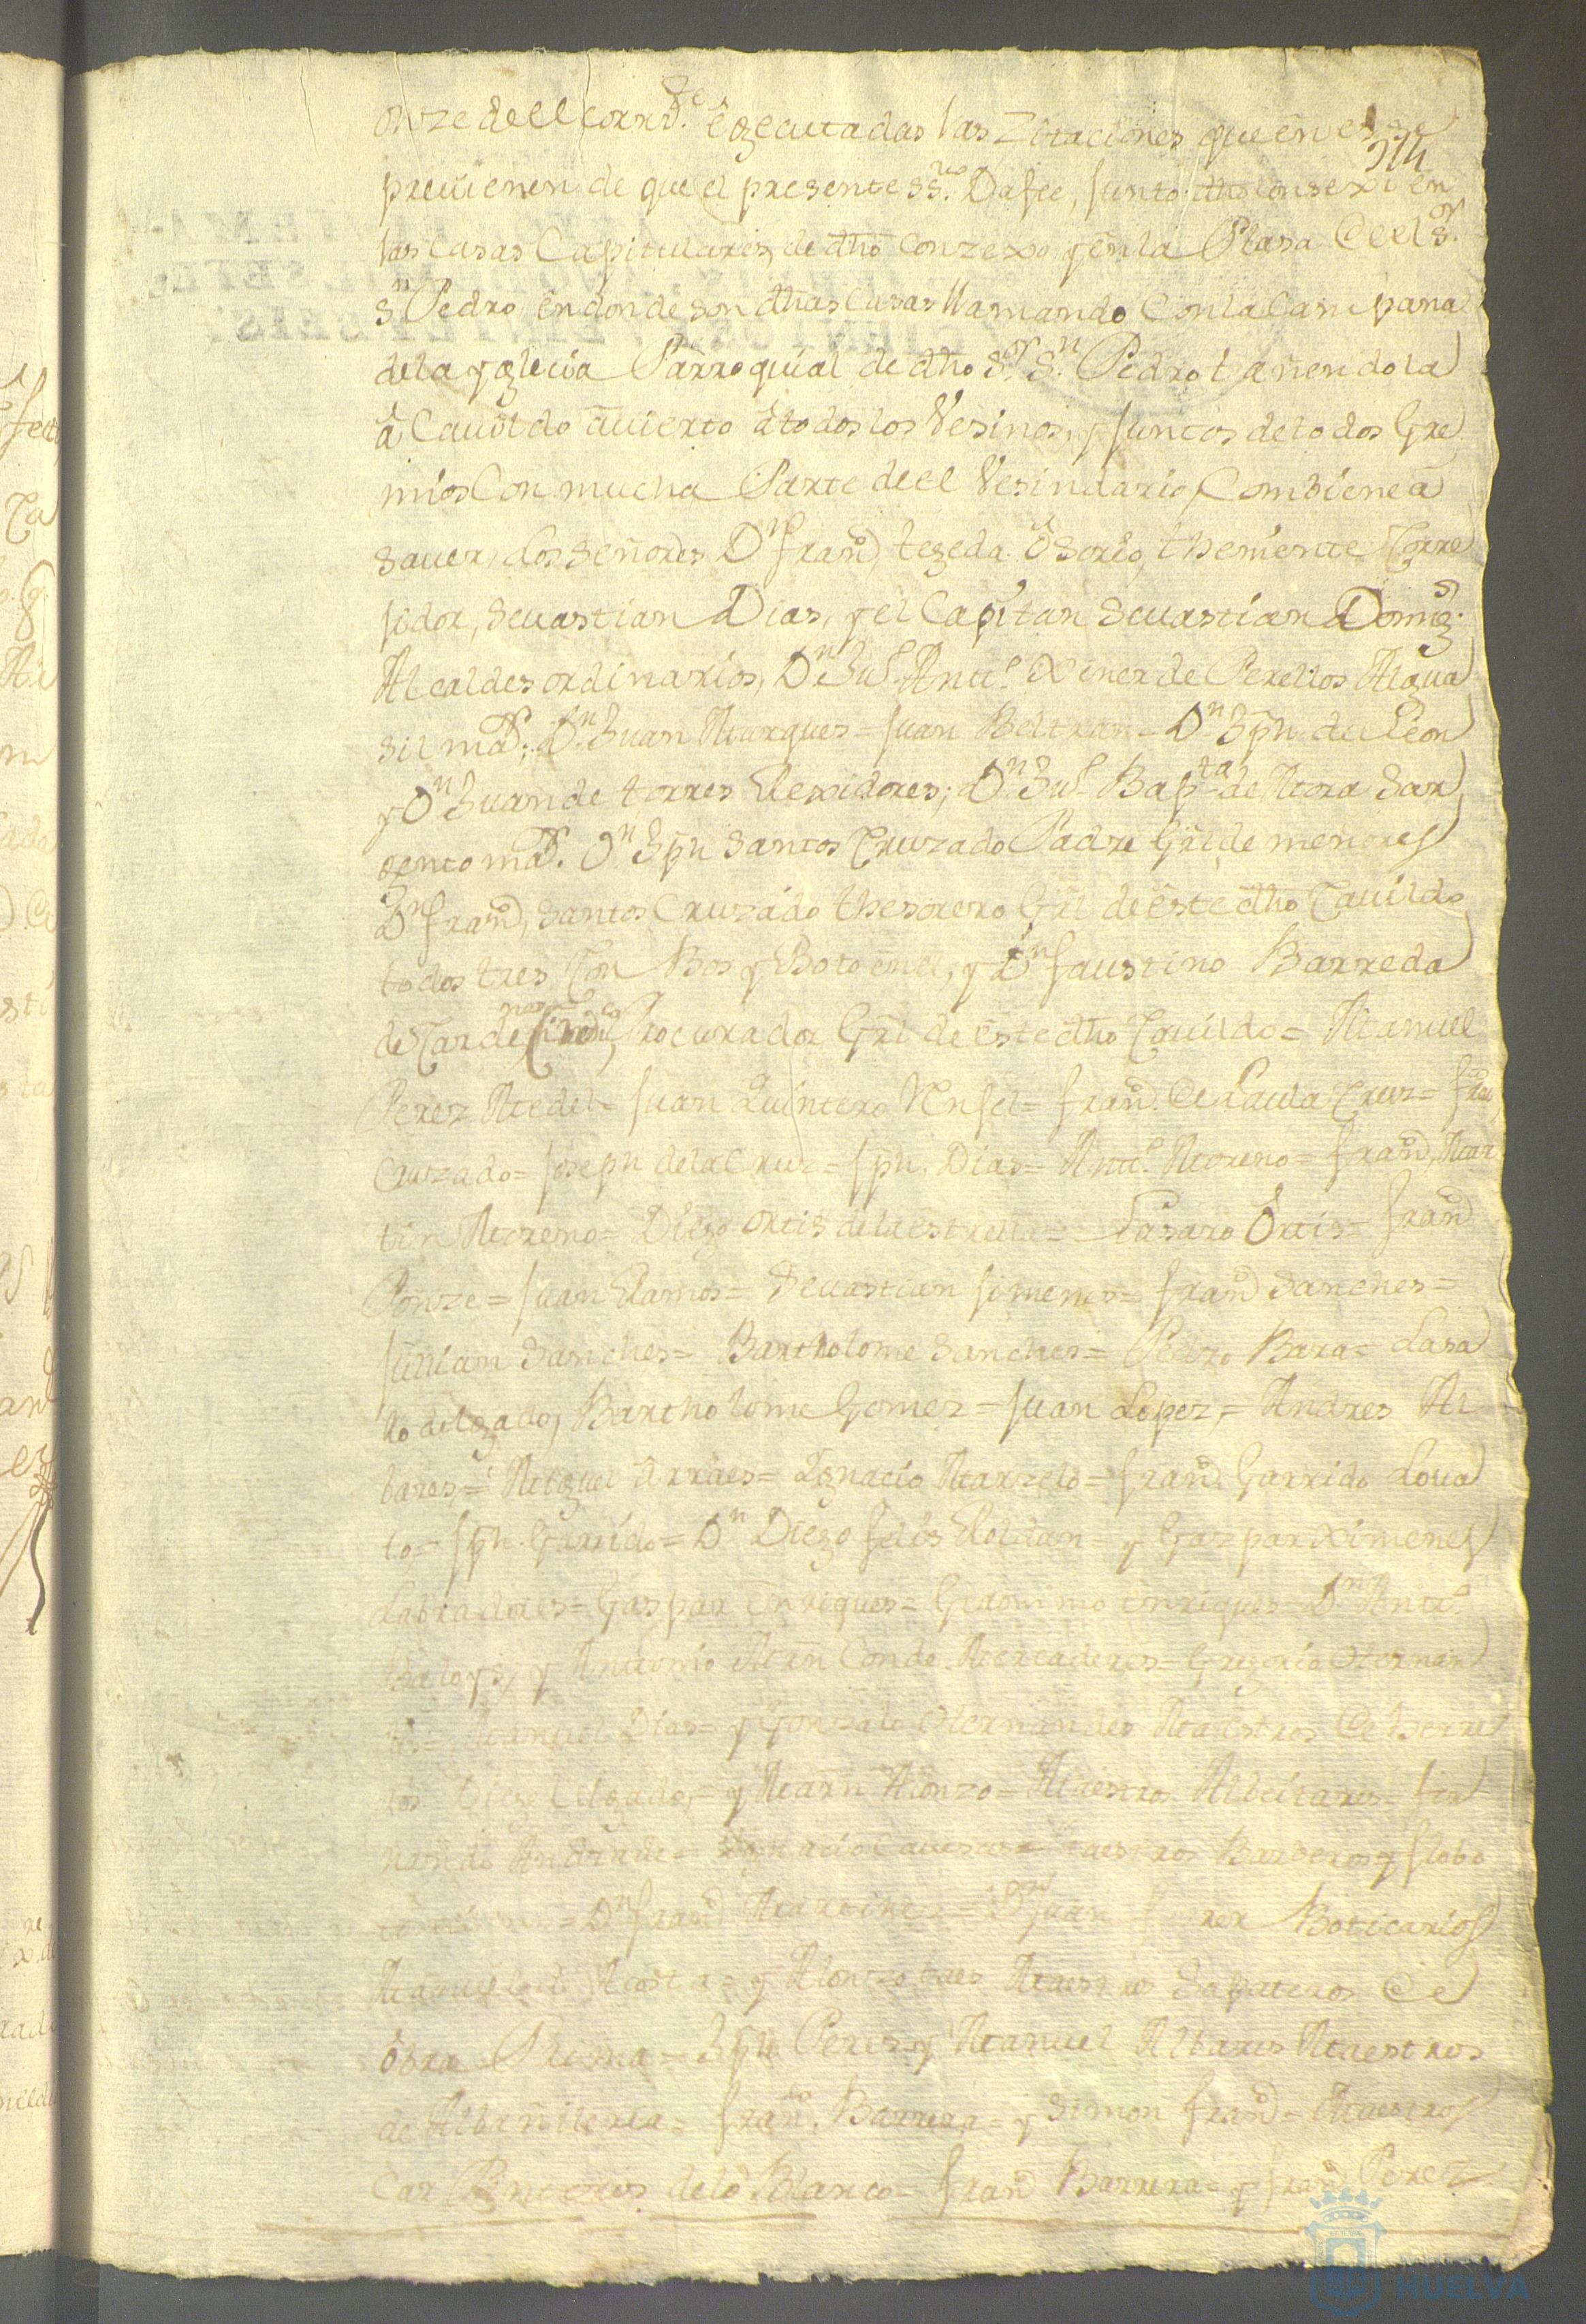 onze deel corr.te êgecutadas las Zitaciones que ên el se
214
preuienen de que el presente SS.no Da fee, junto dho Consexo ên
las Casas Capitulares, de dho Conzexo y ên la Plasa de el S.r
S.n Pedro ên donde son dhas Casas llamando Con la Campana
de la yglecia Parroquial de dho S.r S.n Pedro tañendola
â Cauildo âuierto â todos los Vesinos, y juntos de todos Gre
mios Con mucha Parte de el Vesindario, Combiene â
sauer, los señores D.n Fran.co tegeda ôsorio, theniente Corre
jidor, Seuastian Dias, y el Capitan Seuastian Doming.s
Alcaldes ordinarios, D.n Ju.o Antt.o Xiner de Perellos Algua
sil ma.r; D.n Juan Marques = Juan Beltran = D.n Jph de Leon
y D.n Juan de torres Rexidores; D.n Ju.o Bap.ta de Mora Sar
gento ma.r. D.n Jph Santos Cruzado Padre Grâl de menores
D.n Fran.co Santos Cruzado thesorero Grâl de êste dho Cauildo
todos tres Con Bos y Boto ên el, y D.n Faustino Barreda
de Cardenas Procurador Grâl de êste dho Cauildo = Manuel
Perez Medel = Juan Quintero Monjel = Fran.co de Paula Cruz = Fran.co
Cruzado = Joseph de la Cruz = Jph. Dias = Antt.o Moreno = Fran.co Mar
tin Moreno = Diego Ortis de la estrella = Lasaro Ortis = Fran.co
Ponze = Juan Ramos = Seuastian Jimenes = Fran.co Sanches =
Julian Sanches = Bartholome Sanches = Pedro Bara = Lasa
ro delgado, Bartholome Gomez = Juan Lopez, = Andres Al
bares = Miguel Arraes = Ignacio Marzelo = Fran.co Garrido Loua
to = Jph. Garrido = D.n Diego Felis Roldan = y Gaspar Ximenes
Labradores = Gaspar Enriques = Geronimo Enriques = D.n Antt.o
y Antonio Conde Mercaderes = Gregorio Hernan
des = Manuel Dias = y Gonzalo Hernandes Maestros de herre
ros Diego delgado, = y Marn Alonzo = Maestros Albeitares = Fer
nando Andrade = Ignacio = Maestros Barberos y flobo
= D.n Fran.co Martinez = D.n Juan Boticarios
Manuel de Acosta = y Alonzo Maestros Sapateros de
ôbra Prima = Jph Peres y Manuel Albares Maestros
de Albañileria = Fran.co Barrera = y Simon Fran.co = Maestros
Carpinteros de lo Blanco = Fran.co Barrera = y Fran.co Perez
HUELVA